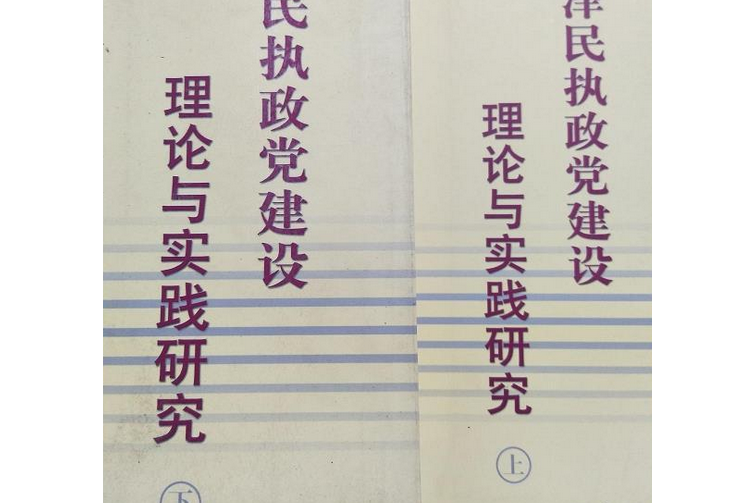 民执政党建设
理论与实践研究
下
泽民执政党建设
理论与实践研究
上